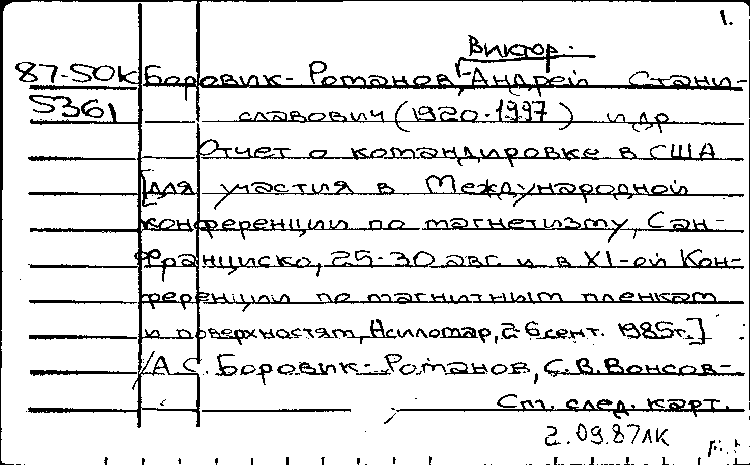 1.
Виктор.
87-50К Боровик-Романов, Андрей Стани-
5361 славович (1920-1997) и др
Отчет о командировке в США
[для участия в Международной
конференции по магнетизму, Сан-
Франциско, 25-30 авг. и в XI-ой Кон-
ференции по магнитным пленкам
и поверхностям, Асиломар, 2-6 сент. 1985г.]
/А.С. Боровик-Романов, С.В. Вонсов-
См. след. карт.
2.09.87 ЛК